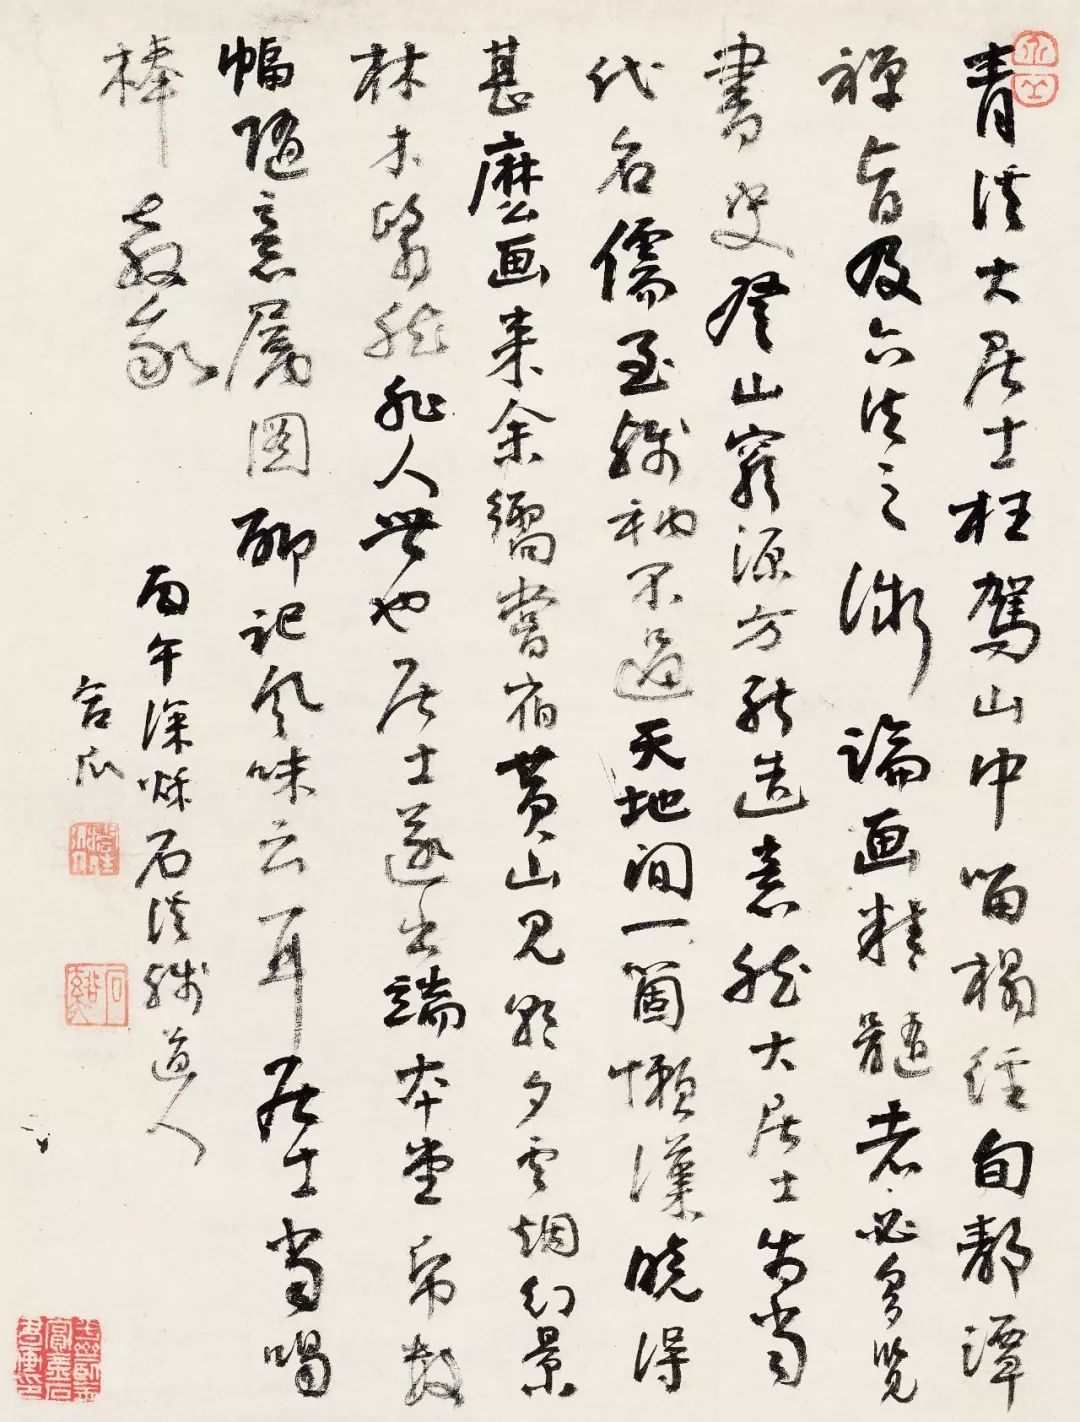 青溪大居士枉驾山中留榻经旬静谭
禅旨及六法之微论画精髓者必多览
书史登山穷源方能造意然大居士为当
代名儒至残衲不过天地间一个懒汉晓得
甚麽画来余嚮尝宿黄山见朝夕云烟幻景
林木翳然非人世也居士遂出端本堂纸数
幅随意属图聊记风味云耳居士当喝
棒教我
丙午深秋石溪残道人
合爪
石谿